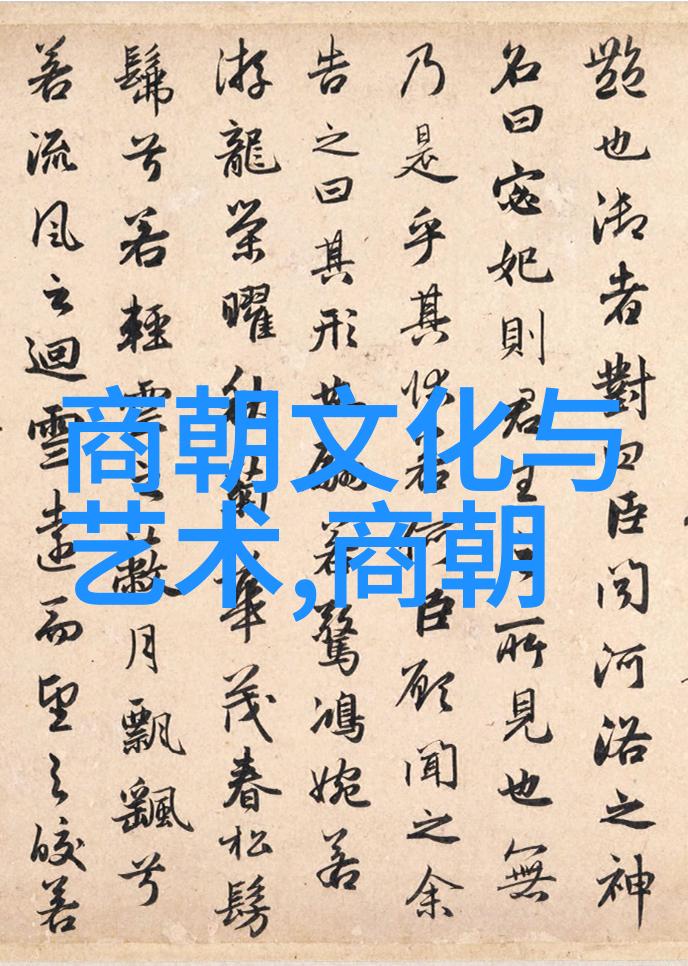 艷也御者對曰臣聞河洛之神
名曰宓妃則君王之所見也無
乃是乎其状若何臣願聞之余
告之曰其形也翩若驚鴻婉若
游龍榮曜秋菊華茂春松髣
髴兮若輕雲之蔽月飄颻兮
若流風之迴雪遠而望之皎若
商朝文化与
艺术,商朝